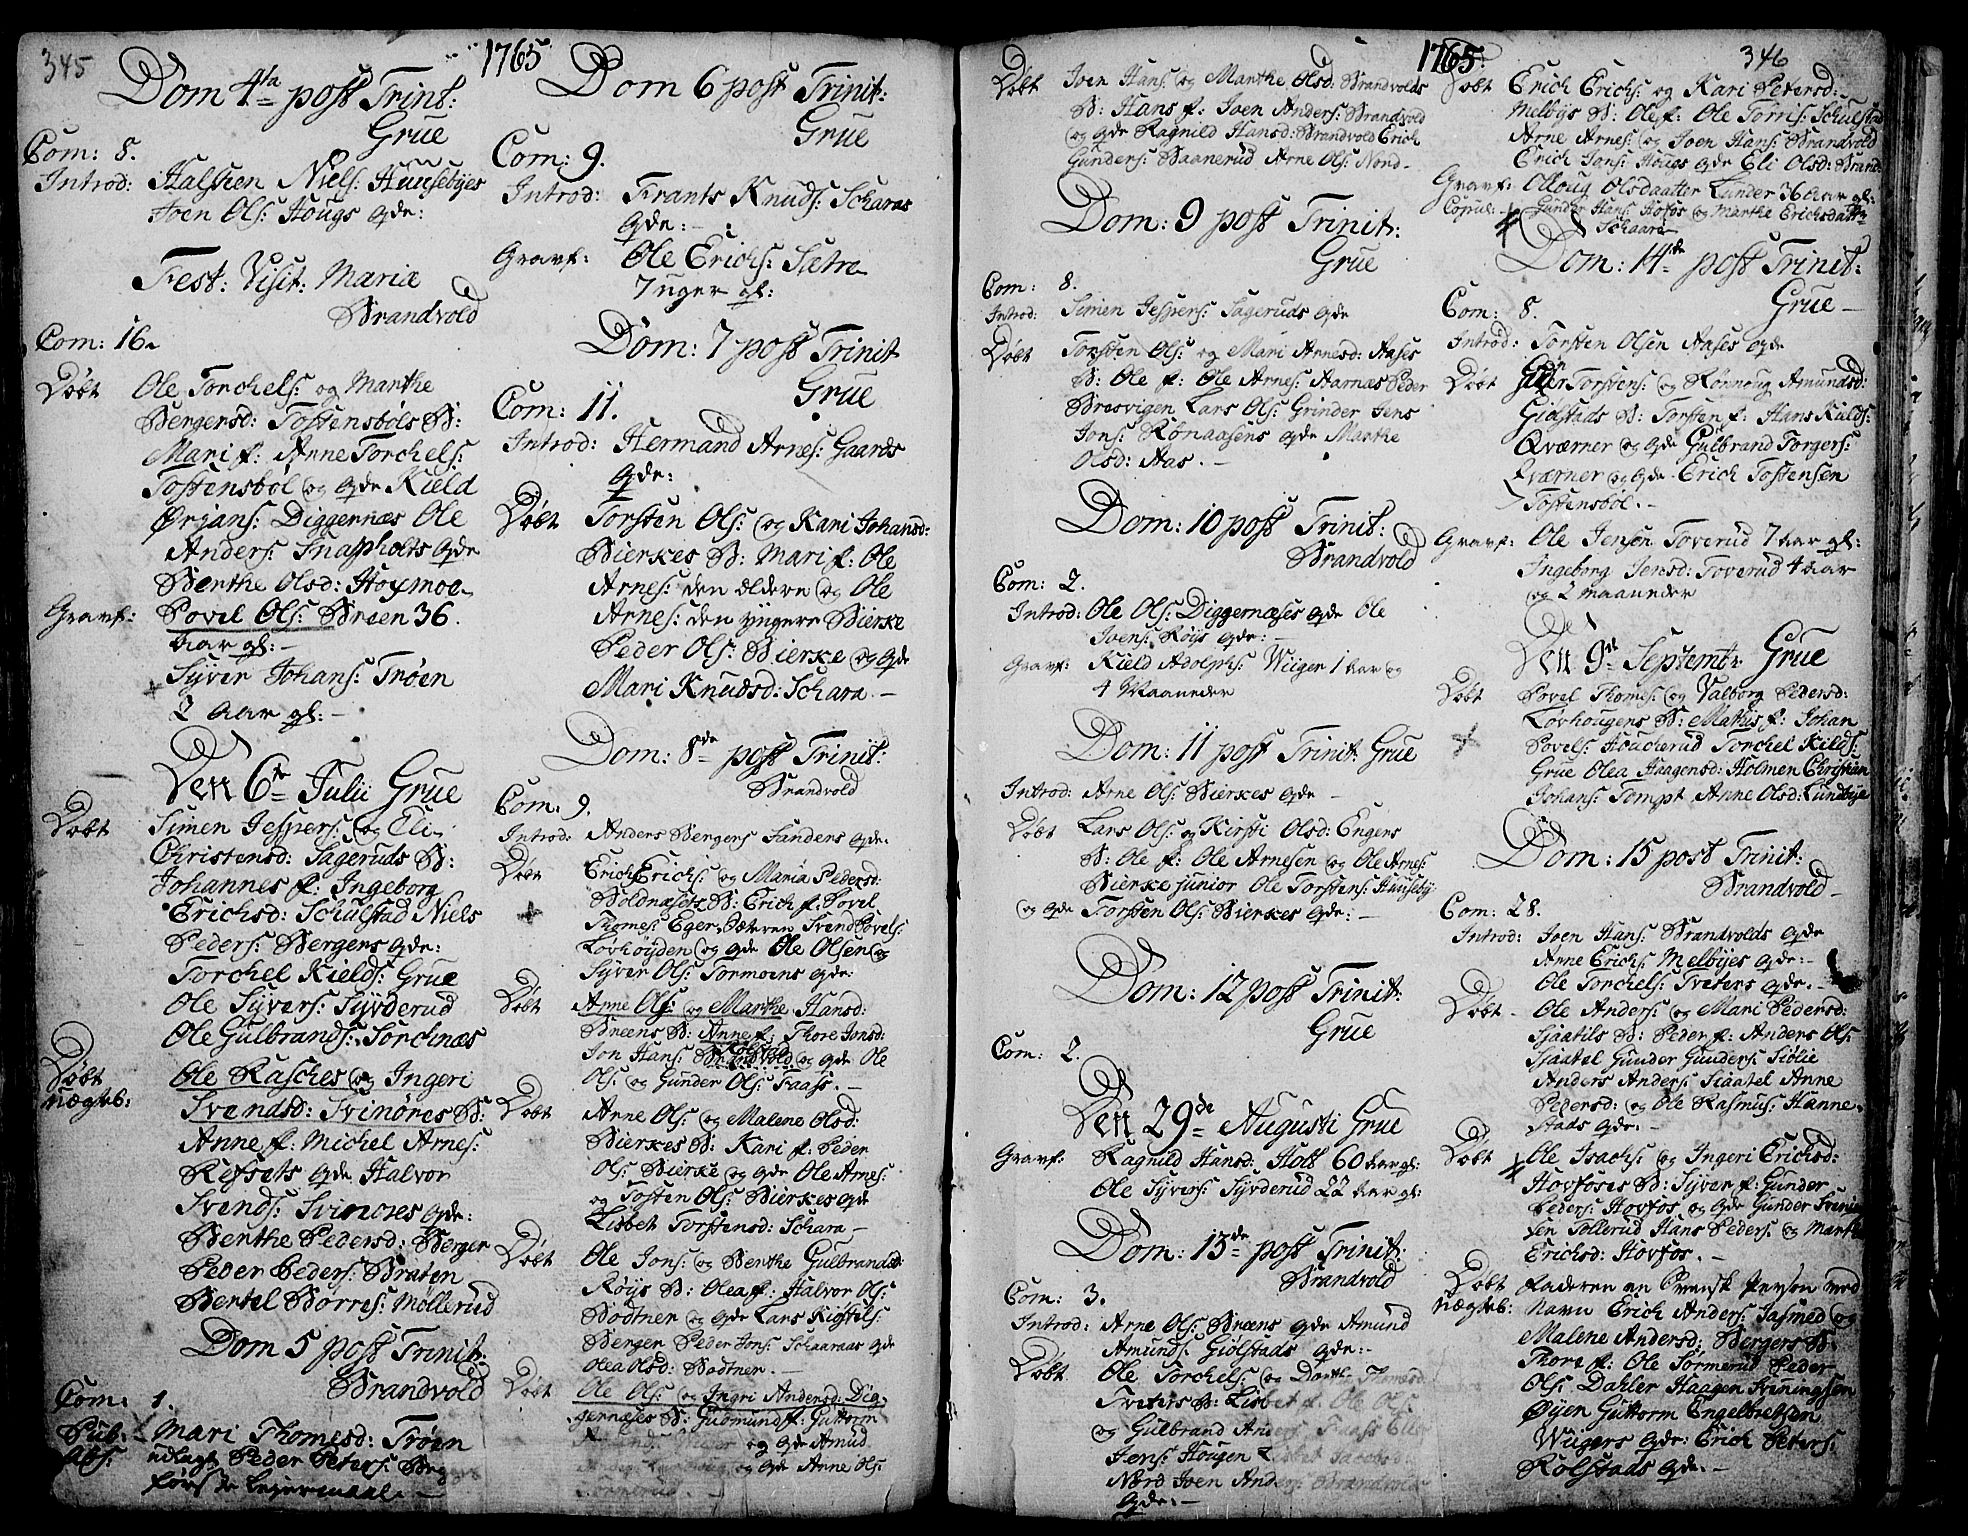 345
1765
Dom 4ta post Trint:
Grue
Com: 8.
Introd: Halsten Niels: Huusebyes
Joen Ols: Hougs qde:
Fest: Visit: Mariæ
Brandvold
Com: 16.
Døbt Ole Torchels: og Marthe
Bergersd: Tostensbøls B:
Mari f: Anne Torchels:
Tostensbøl og qde Kield
Ørjans: Diggernæs Ole
Anders: Snapholts qde
Berthe Olsd: Høymoe
Gravf: Povel Ols: Breen 36.
aar gl: -
Syver Johans: Trøen
2 aar gl: -
Den 6te Julii Grue
Døbt Simen Jespers: og Eli
Christensd: Sageruds B:
Johannes f: Ingeborg
Erichsd: Schulstad Niels
Peders: Bergers qde:
Torchel Kields: Grue
Ole Syvers: Syvderud
Ole Gulbrands: Sorchnæs
Døbt Ole Rasches og Ingeri
uægteb: Svendsd: Svinøres B:
Anne f: Michel Arnes:
Refsets qde Halvor
Svends: Svinøres qde:
Berthe Pedersd: Berger
Peder Peders: Braten
Bertel Børres: Møllerud
Dom 5 post Trinit:
Brandvold
Com: 1.
Pub: Mari Thomesd: Trøen
Abs: udlagt Peder Peters:
første Lejermaal. -
Dom 6 post Trinit:
Grue
Com: 9.
Introd: Frants Knuds: Scharas
qde: -
Gravf: Ole Erichs: Sætre
7 uger gl:
Dom: 7 post Trinit
Grue
Com: 11.
Introd: Hermand Arnes: Gaards
qde:
Døbt Torsten Ols: og Kari Johansd:
Bierkes B: Mari f: Ole
Arnes: den eldere og Ole
Arnes: den yngere Bierke
Peder Ols: Bierke og qde
Mari Knudsd: Schara. -
Dom: 8de post Trinit:
Brandvold
Com: 9.
Introd: Anders Bergers Sanders qde:
Døbt Erich Erichs: og Maria Pedersd:
Boldnæsets B: Erich f: Povel
Thomes: Eger, Sæteren Svend Povels:
Løvhøyden og qde Ole Olsen og
Syver Ols: Tormoens qde:
Døbt Arne Ols: og Marthe Hansd:
Breens B: Anne f: Thore Jonsd:
Jon Hans: Brandvold og qde Ole
Ols: og Gunder Ols: Faass. -
Døbt Arne Ols: og Malene Olsd:
Bierkes B: Kari f: Peder
Ols: Bierke og qde Ole Arnes:
og Tosten Ols: Bierkes qde
Lisbet Torstensd: Schara -
Døbt Ole Jons: og Berthe Gulbrandsd:
Røys B: Olea f: Halvor Ols:
Bodtner og qde Lars Kiøstils:
Bergen Peder Jons: Schaaraas qde
Olea Olsd: Bodtner. -
Døbt Ole Ols: og Ingri Andersd: Dig-
gernæses B: Gudmund f: Guttorm
og qde Amud
og qde Anne Ols:
1765
346
Døbt Joen Hans: og Marthe Olsd: Brandvolds
B: Hans f: Joen Anders: Brandvold
og qde Ragnild Hansd: Brandvold Erich
Gunders: Baanerud Arne Ols: Nord-
Dom: 9 post Trinit:
Grue
Com: 8.
Introd: Simen Jespers: Sageruds qde
Døbt Torsten Ols: og Mari Arnesd: Aases
B: Ole f: Ole Arnes: Aarnæs Peder
Bresvigen Lars Ols: Grinder Jens
Jons: Rønaasens qde Marthe
Olsd: Aas. -
Dom: 10 post Trinit:
Brandvold
Com: 2.
Introd: Ole Ols: Diggernæses qde Ole
Joens: Røys qde: -
Gravf: Kield Adolphs: Wiiger 1 aar og
4 Maaneder
Dom: 11 post Trinit: Grue
Introd: Arne Ols: Bierkes qde -
Døbt Lars Ols: og Kirsti Olsd: Engers
B: Ole f: Ole Arnesen og Ole Arnes:
Bierke junior Ole Torstens: Huuseby
og qde Torsten Ols: Bierkes qde: -
Dom: 12 post Trinit:
Grue
Com: 2.
Den 29de Augusti Grue
Gravf: Ragnild Hansd: Holt 60 aar gl:
Ole Syvers: Syvderud 22 aar gl:
Dom: 13de post Trinit:
Brandvold
Com: 3.
Introd: Arne Ols: Breens qde Amund
Amunds: Giølstads qde: -
Døbt Ole Torchels: og Dorthe Thomesd:
Tveters B: Lisbet f: Ole Ols:
og Gulbrand Anders: Faass
Jens: Hougen Lisbet Jacobsd:
Nord Joen Anders: Brandvolds
qde: -
Døbt Erich Erichs: og Kari Petersd:
Melbys B: Ole f: Ole Torris: Schulstad
Arne Arnes: og Joen Hans: Brandvold
Erich Jons: Hougs qde Eli Olsd: Brand:
Gravf: Olloug Olsdaatter Lunder 36 aar gl:
Copul: Gunder Hans: Hofos og Marthe Erichsdattr
Schaara
Dom: 14de post Trinit:
Grue -
Com: 8.
Introd: Torsten Olsen Aases qde
Døbt Torstens: og Rønnoug Amundsd:
Giølstads B: Torsten f: Hans Kields:
Qværner og qde Gulbrand Torgers:
Qværner og qde Erich Tostensen
Tostensbøl. -
Gravf: Ole Jensen Toverud 7 aar gl:
Ingeborg Jensd: Toverud 4 aar
og 2 maaneder
Den 9de Septembr Grue
Døbt Povel Thomes: og Valborg Pedersd:
Løvhougens B: Mathis f: Johan
Povels: Houcherud Torchel Kilds:
Grue Olea Haagensd: Holmen Christian
Johans: Tompt Anne Olsd: Lundbye
Dom: 15 post Trinit:
Brandvold -
Com: 28.
Introd: Joen Hans: Brandvolds qde
Arne Erichs: Melbyes qde: -
Ole Torchels: Tveters qde. -
Døbt - Ole Anders: og Mari Pedersd:
Sjaatils B: Peder f: Anders Ols:
Sjaatel Gunder Gunders: Siølie
Anders Anders: Sjaatel Anne
Pedersd: og Ole Rasmus: Hanne-
stads qde: -
Døbt Ole Isachs: og Ingeri Erichsd:
Hovfoses B: Syver f: Gunder
Peders: Hovfos og qde Gunder
sen Tollerud Hans Peders: og Marthe
Erichsd: Hovfos. -
Døbt Faderen en Svensk Person ved
uægteb: Navn Erich Anders: Sasmed og
Malene Andersd: Bergers B:
Thore f: Ole Sormerud Peder
Ols: Dahler Haagen Svenningsen
Øyen Guttorm Engelbretsen
Wiigers qde: Erich Peters:
Rolstads qde. -